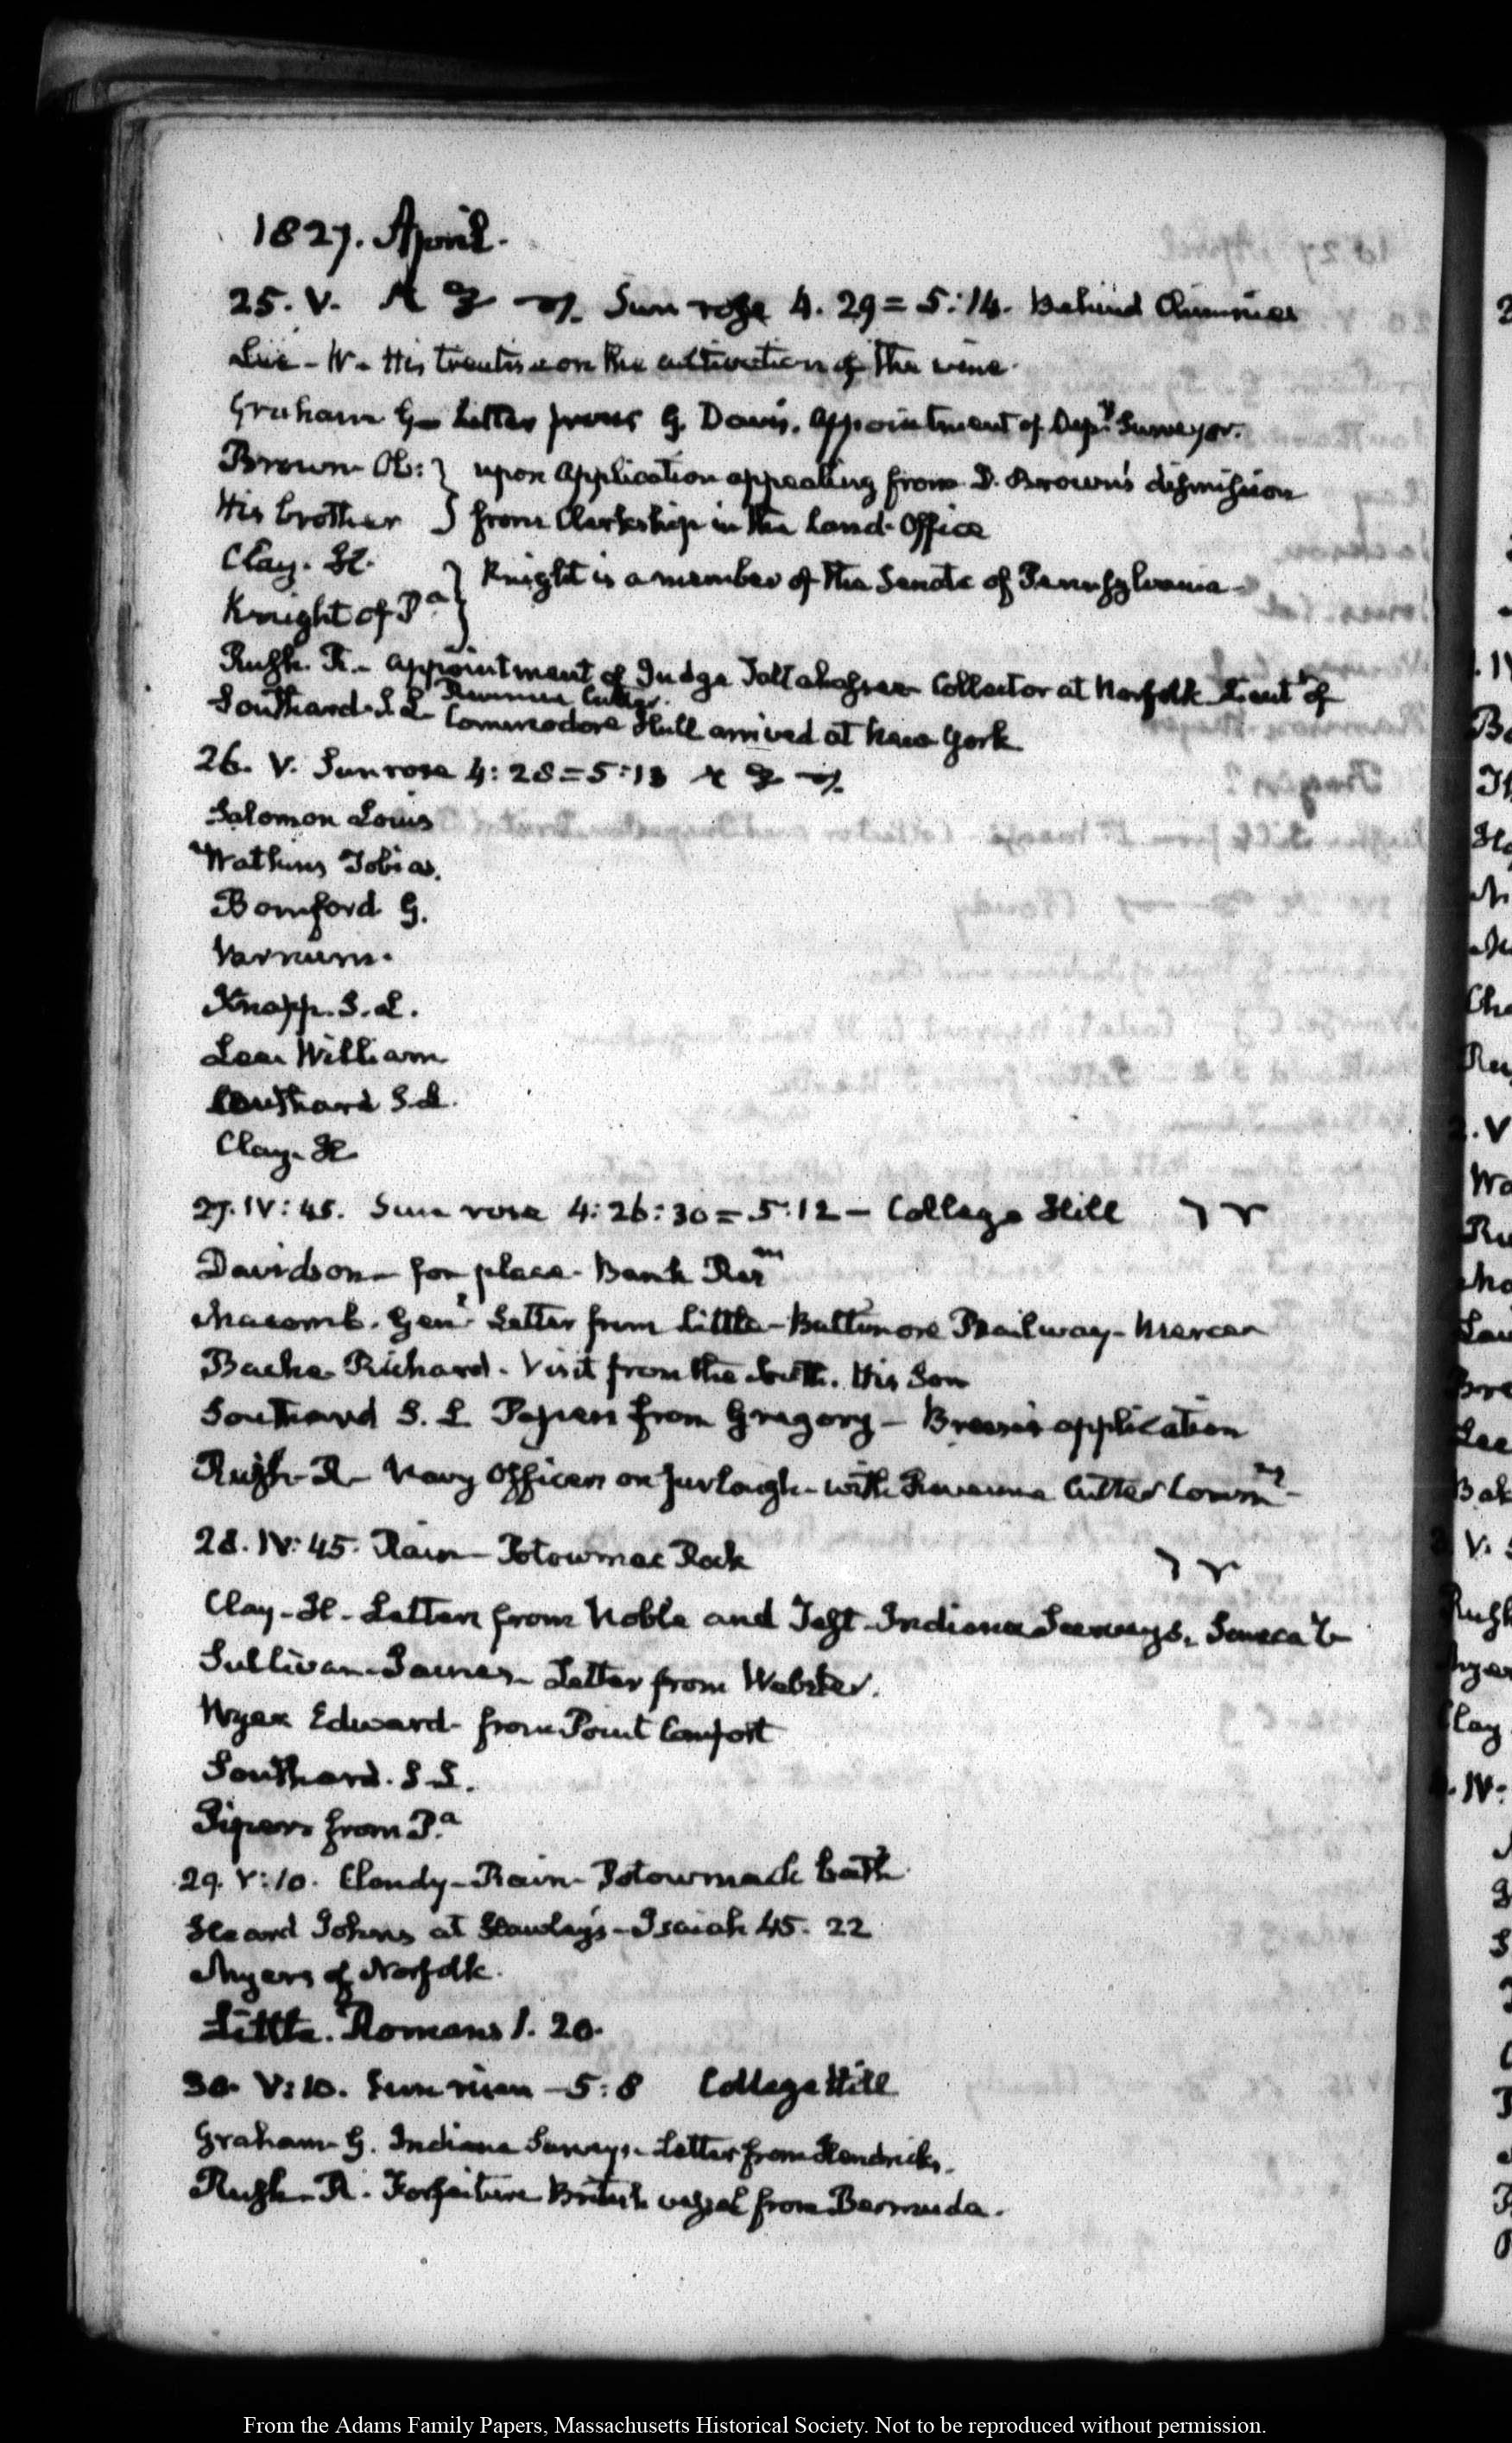 1827. April.
25. V. Sun rose 4. 29 = 5:14. Behind Chimnies
Lee - W - His treatise on the cultivation of the vine.
Graham G - Letter from G. Davis. Appointment of Depy. Surveyor.
Brown Ob: } upon application appealing from D. Brown's dismission
His brother } from Clerkship in the Land-Office
Clay. H.
Knight of Pa } Knight is a member of the Senate of Pennsylvania
Rush. R. - appointment of Judge Tallahassee Collector at Norfolk Lieut of
Revenue Cutter.
Southard. S. L Commodore Hull arrived at New York
26. V. Sun rose 4:28 = 5:13
Salomon Louis
Watkins Tobias.
Bomford G.
Varnum.
Knapp. S. L.
Lee William
Southard S. L.
Clay. H
27. IV:45. Sun rose 4:26:30 = 5:12 - College Hill
Davidson - for place. Bank
Macomb. Genl. Letter from Little - Baltimore Railway - Mercer
Bache Richard. Visit from the South. His Son
Southard S. L Papers from Gregory - application
Rush. R - Navy Officers on furlough - with Revenue Cutter
28. IV:45. Rain - Potowmac Rock
Clay - H. - Letters from Noble and Test - Indiana Surveys.
Sullivan James - Letter from Webster.
Wyer Edward - from Point Comfort
Southard. S. L.
Pipers from Pa
29. V:10. Cloudy - Rain - Potowmack bath
Heard Johns at Hawley's - Isaiah 45. 22
Myers of Norfolk.
Little. Romans 1. 20.
30. V:10. Sun risen - 5:8 College Hill
Graham G. Indiana Surveys - Letter from Hendricks.
Rush - R. Forfeiture British vessel from Bermuda.
From the Adams Family Papers, Massachusetts Historical Society. Not to be reproduced without permission.